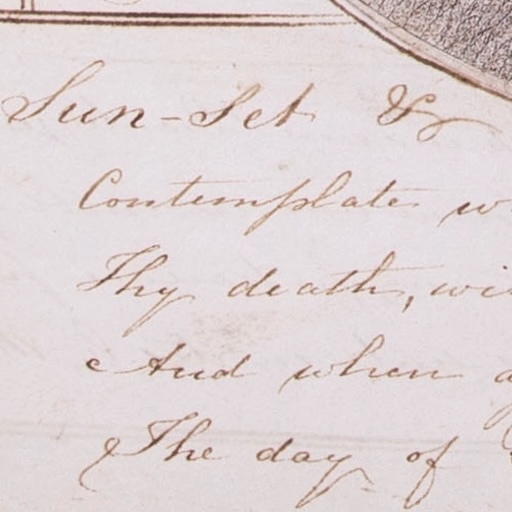 Sun-Set &
Contemplate
Thy death,
And when
The day of